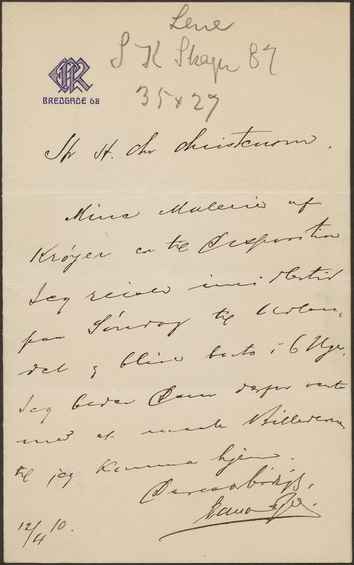 BREDGADE 68
Lene
S K Skagen 87
35 x 27
Hr H. Chr Christensen.
Mine Malerier af
Krøyer er til Disposition
Jeg reiser imidlertid
paa Søndag til Udlan-
det og bliver borte i 6 Uger.
Jeg beder Dem derfor vente
med at sende Billederne
til jeg kommer hjem.
12/4 10.